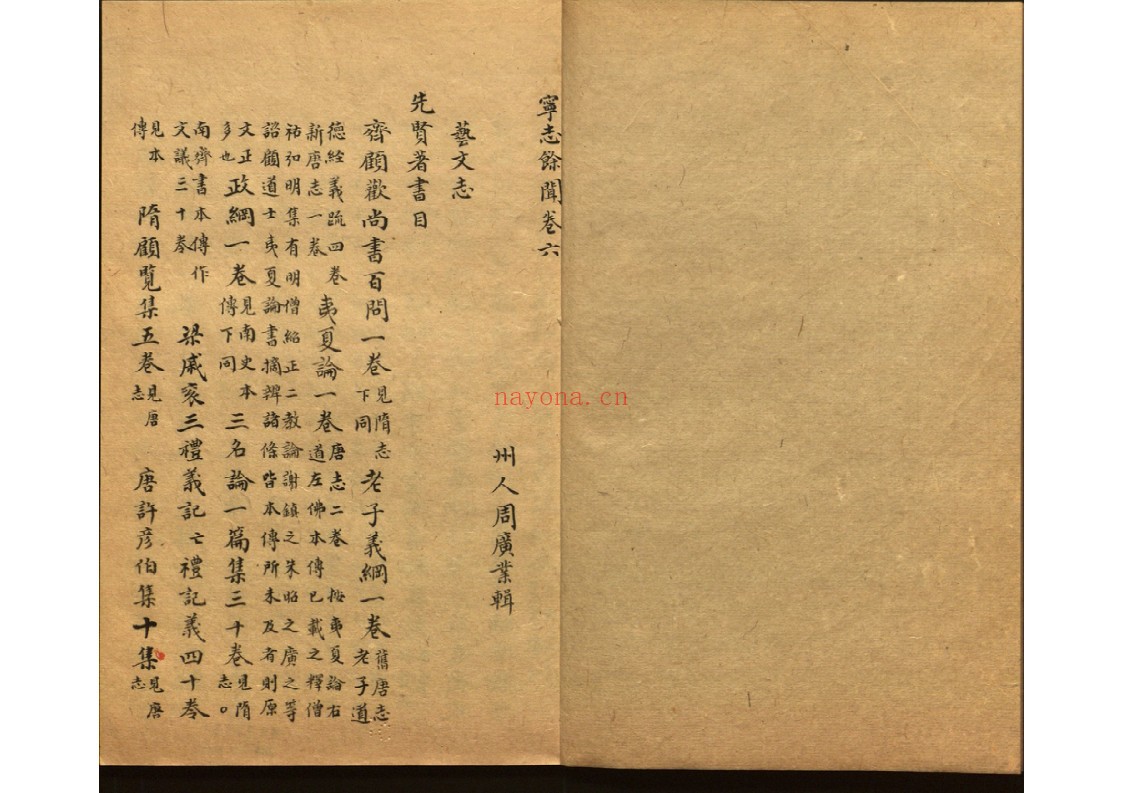 寧志餘聞卷六
州人周廣業輯
藝文志
先賢著書目
齊顧歡尚書百問一卷見隋志下同老子義綱一卷舊唐志老子道
德經義疏四卷新唐志一卷夷夏論一卷唐志二卷按夷夏論右道左佛本傳已載之釋僧
祐弘明集有明僧紹正二教論謝鎮之朱昭之廣之等諮顧道士夷夏論書摘辨諸條皆本傳所未及者則原
文正多也政綱一卷見南史本傳下同三名論一篇集三十卷見隋志。
南齊書本傳作文議三十卷梁戚袞三禮義記亡禮記義四十卷
見本傳隋顧覽集五卷見唐志唐許彥伯集十集見唐志
nayona.cn